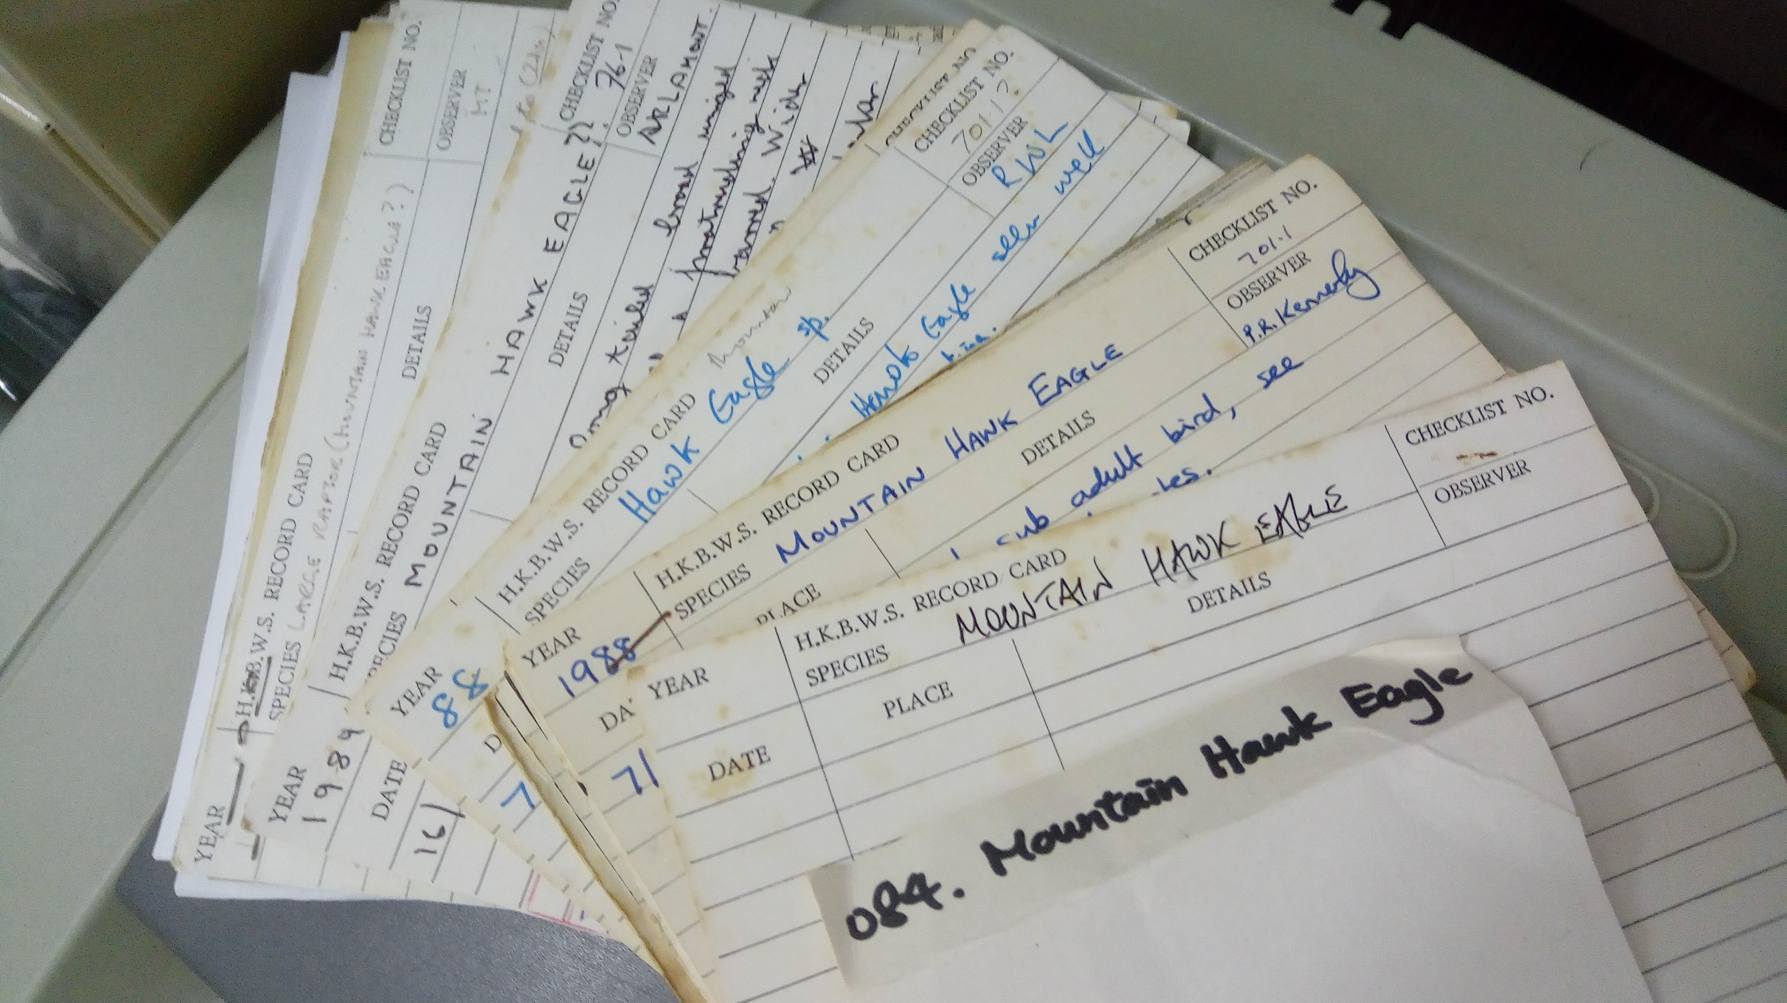 CHECKLIST NO.
OBSERVER
MT
H.K.B.W.S. RECORD CARD
SPECIES LARGE RAPTOR (MOUNTAIN HAWK EAGLE?)
DETAILS
YEAR
CHECKLIST NO.
76-1
OBSERVER
H.K.B.W.S. RECORD CARD
SPECIES MOUNTAIN HAWK EAGLE?)
DETAILS
YEAR
1989
DATE
16/
Long tailed broad winged
protruding neck
barred. Wide
CHECKLIST NO.
CHECKLIST NO.
701.1?
OBSERVER
RWL
H.K.B.W.S. RECORD CARD
Mountain
SPECIES Hawk Eagle sp.
DETAILS
YEAR
88
D
7
Hawk Eagle seen well
CHECKLIST NO.
701.1
OBSERVER
P.R. Kennerly
H.K.B.W.S. RECORD CARD
SPECIES MOUNTAIN HAWK EAGLE
PLACE
DETAILS
YEAR
1988
DA
7/
1 sub adult bird, see
CHECKLIST NO.
OBSERVER
H.K.B.W.S. RECORD CARD
SPECIES MOUNTAIN HAWK EAGLE
YEAR
PLACE
DETAILS
DATE
084. Mountain Hawk Eagle